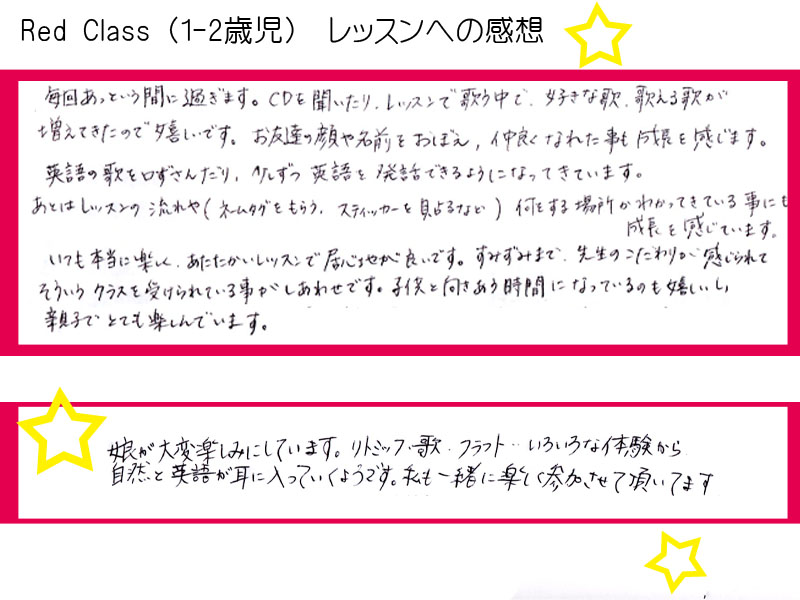 Red Class（1-2歳児） レッスンへの感想
毎回あっという間に過ぎます。CDを聞いたり、レッスンで歌う中で、好きな歌、歌える歌が
増えてきたので嬉しいです。お友達の顔や名前をおぼえ、仲良くなれた事も成長を感じます。
英語の歌を口ずさんだり、少しずつ英語を発話できるようになってきています。
あとはレッスンの流れや（ネームタグをもらう、スティッカーを貼るなど）何をする場所かわかってきている事にも
成長を感じています。
いつも本当に楽しく、あたたかいレッスンで居心地が良いです。すみずみまで、先生のこだわりが感じられて
そういうクラスを受けられている事がしあわせです。子供と向きあう時間になっているのも嬉しいし、
親子でとても楽しんでいます。
娘が大変楽しみにしています。リトミック・歌・クラフト‥いろいろな体験から
自然と英語が耳に入っていくようです。私も一緒に楽しく参加させて頂いてます